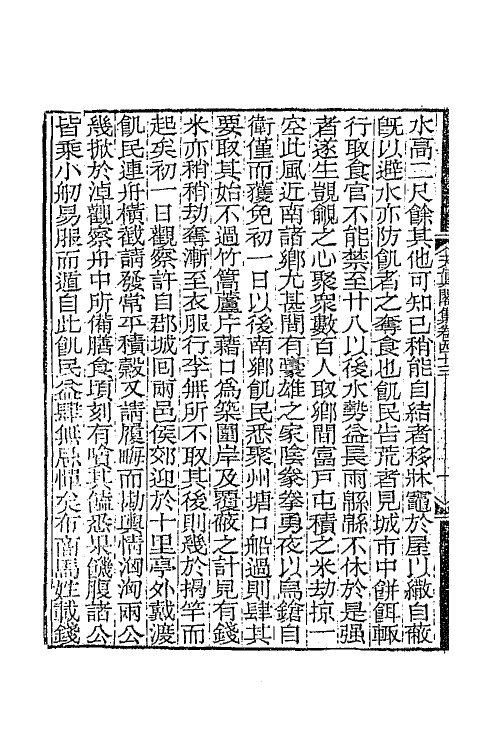 水高二尺餘其他可知已稍能自結者移牀竈於屋以繖自蔽
旣以避水亦防飢者之奪食也飢民告荒者見城市中餠餌輙
行取食官不能禁至廿八以後水勢益長雨緜緜不休於是强
者遂生覬覦之心聚衆數百人取鄉間富戸屯積之米劫掠一
空此風近南諸鄉尤甚間有豪雄之家陰豢拳勇夜以鳥鎗自
衛僅而獲免初一日以後南鄉飢民悉聚州塘口船過則肆其
要取其始不過竹篙蘆片藉口爲築圍岸及覆蔽之計見有錢
米亦稍稍劫奪漸至衣服行李無所不取其後則幾於揭竿而
起矣初一日觀察許自郡城囘兩邑侯郊迎於十里亭外戴渡
飢民連舟橫截請發常平積穀又請履畮而勘輿情洶洶兩公
幾掀於淖觀察舟中所備膳食頃刻有喰其饁悉果饑腹諸公
皆乘小舠易服而遁自此飢民益肆無忌憚矣布商馬姓載錢
天眞閣集卷四十三